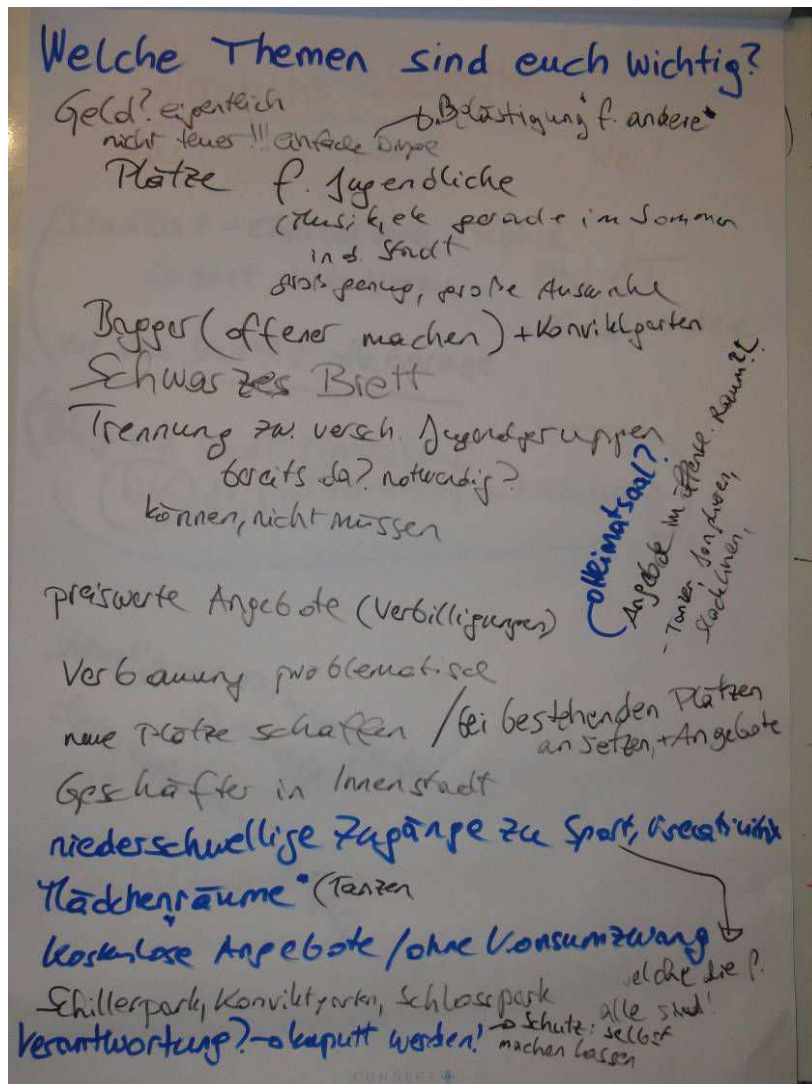 Welche Themen sind euch wichtig?
Geld? eigentlich
nicht teuer!!! einfache Dinge
→ "Belästigung" f. andere
Plätze f. Jugendliche
(Musik, etc gerade im Sommer
in d. Stadt
groß genug, große Auswahl
Bagger (offener machen) + Konviktgarten
Schwarzes Brett
Trennung zw. versch. Jugendgruppen
bereits da? notwendig?
können, nicht müssen
→ Heimatsaal?
Angebote im öffentl. Raum??
- Tanzen, Jonglieren,
Slacklinen,
preiswerte Angebote (Verbilligungen)
Verbauung problematisch
neue Plätze schaffen / bei bestehenden Plätzen
ansetzen, + Angebote
Geschäfte in Innenstadt
niederschwellige Zugänge zu Sport,
"Mädchenräume" (Tanzen
Kostenlose Angebote / ohne Konsumzwang
welche die f.
alle sind!
Schillerpark, Konviktgarten, Schlosspark
Verantwortung? → kaputt werden! → Schutz: selbst
machen lassen
CONNECT